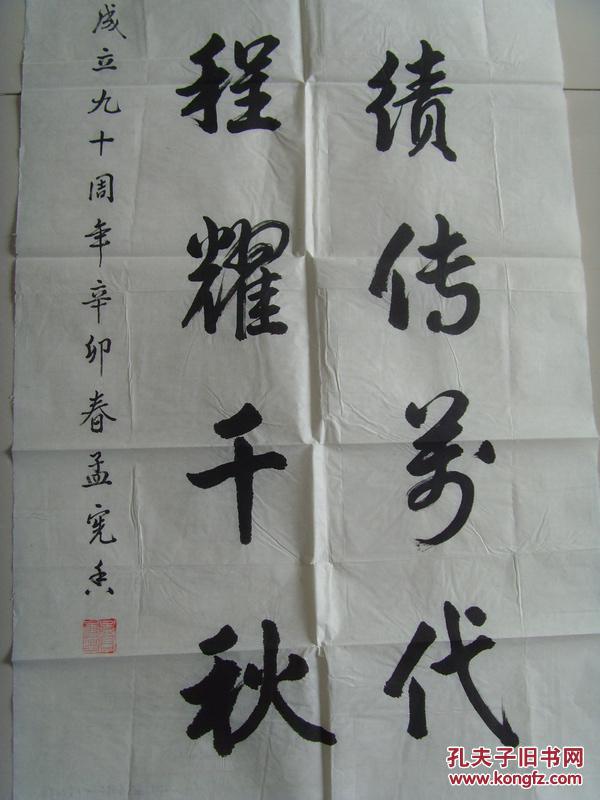 绩传萬代
程耀千秋
成立九十周年辛卯春孟宪香
孔夫子旧书网
www.kongfz.com